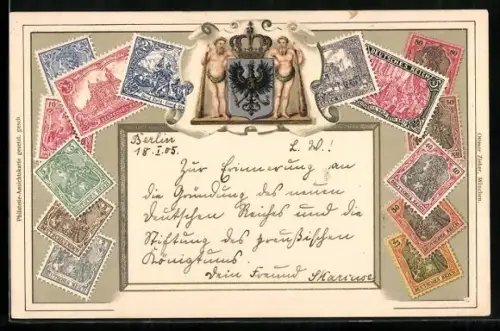 Berlin
18.I.05.
L. W.!
Zur Erinnerung an
die Gründung des neuen
Deutschen Reichs und die
Stiftung des preußischen
Königtums.
Dein Freund
DEUTSCHES REICH
Philatelie-Ansichtskarte gesetzl. gesch.
Ottmar Zieher, München.